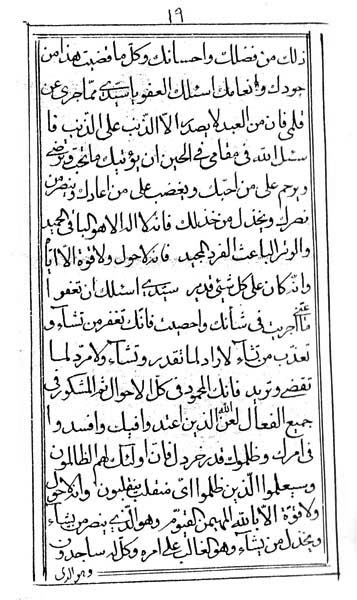 ١٩
ذلك من فضلك واحسانك وكل ما قضيت هذا من
جودك وانعامك اسئلك العفو يا سيدى مما جرى عن
قلمى فان من العبد لا يصدر الا الذنب على الذنب فا
سئل الله فى مقامى فى الحين ان يؤتيك ما تحب وترضى
ويرحم على من احبك ويغضب على من اعادك وينصر من
نصرك ويخذل من خذلك فانه لا اله الا هو الباقى الحميد
والوتر الباعث الفرد المجيد فانه لا حول ولا قوة الا اياه
وانه كان على كل شئ قدير سيدى اسئلك ان تعفوا
عنى
ما اجريت فى شأنك واحصيت فانك تغفر من تشاء و
تعذب من تشاء لا راد لما تقدر وتشاء ولا مرد لما
تقضى وتريد فانك المحمود فى كل الاحوال ثم المشكور فى
جميع الفعال لعن الله الذين اعتدوا فيك وافسدوا
فى امرك وظلموك قدر خردل فان اولئك هم الظالمون
وسيعلموا الذين ظلموا اى منقلب ينقلبون وانه لا حول
ولا قوة الا بالله المهيمن القيوم وهو الذى ينصر من يشاء
ويخذل من يشاء وهو الغالب على امره وكل له ساجدون
وهو الذى